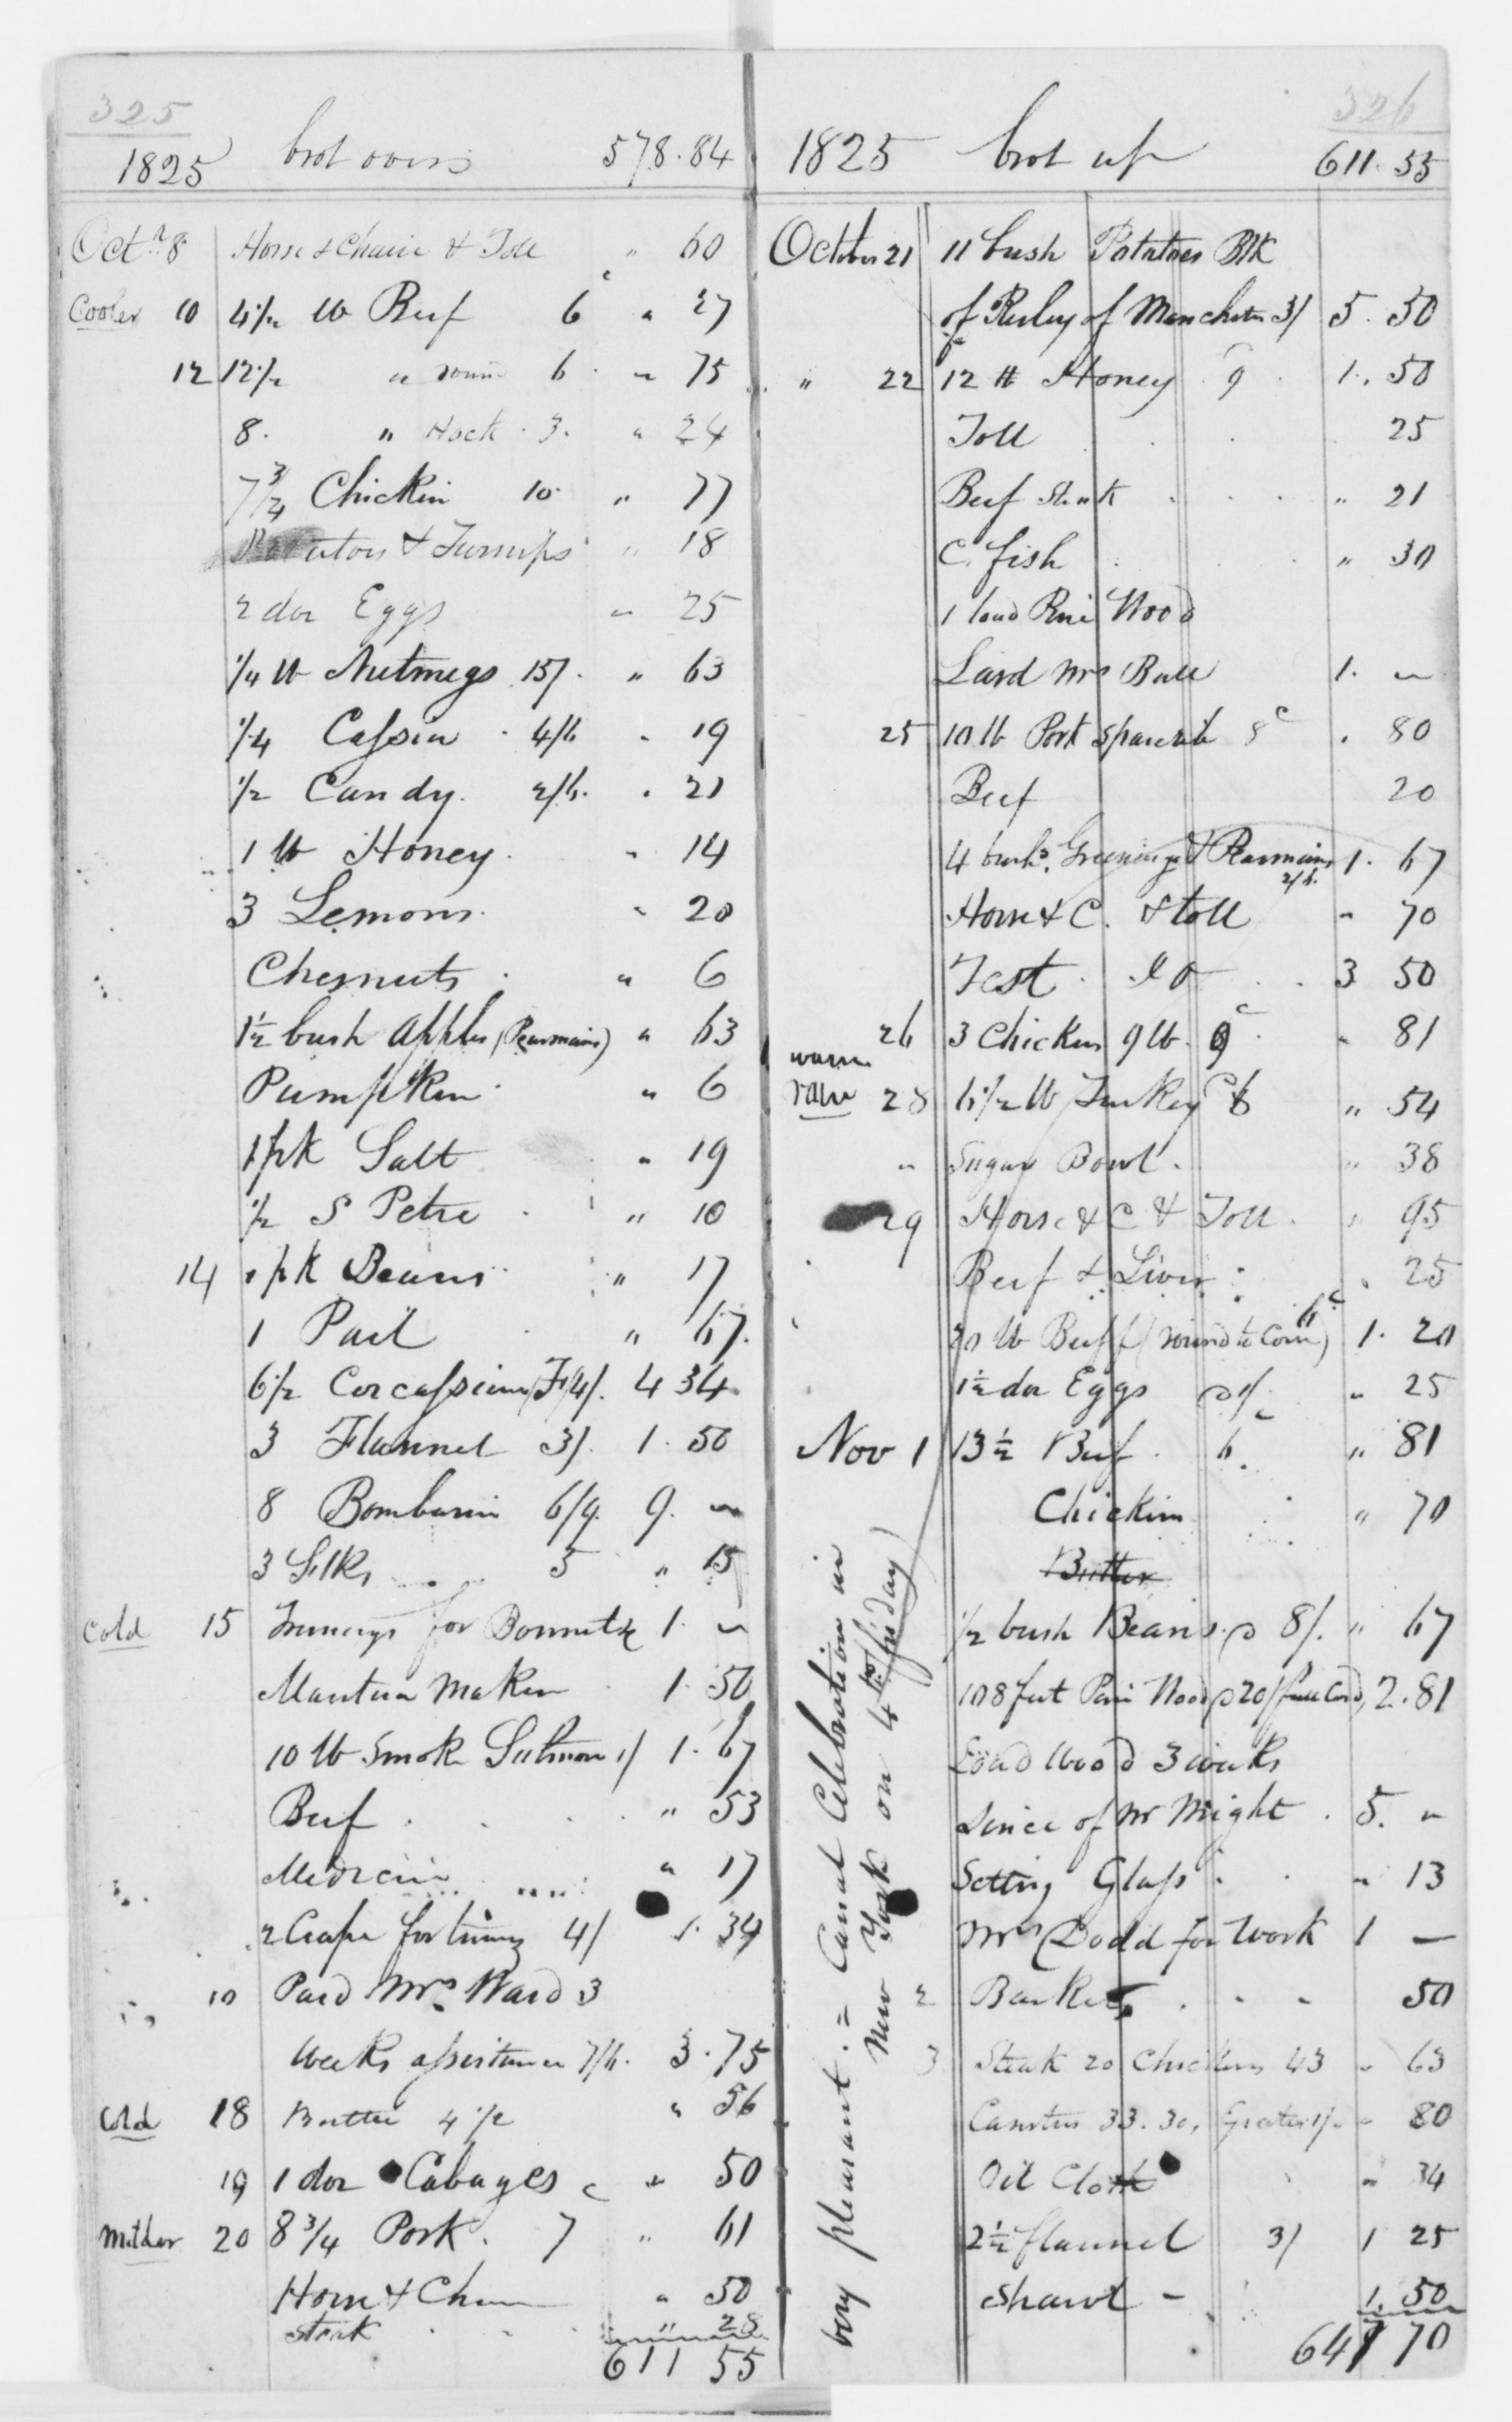 325
1825 brot over 578.84
Octr 8 Horse & Chaise & Toll " 60
Cooler 10 4 1/2 lb Beef 6c " 27
12 12 1/2 " round 6 " 75
8 " Hock 3 " 24
7 3/4 Chickin 10 " 77
& Turnips " 18
2 doz Eggs " 25
1/4 lb Nutmegs 15/ " 63
1/4 Cassia 4/6 " 19
1/2 Candy 2/6 " 21
1 lb Honey " 14
3 Lemons " 20
Chesnuts " 6
1 1/2 bush Apples (Pearmains) " 63
Pumpkin " 6
1 pk Salt " 19
1/2 S Petre " 10
14 1 pk Beans " 17
1 Pail " 67
6 1/2 Circassian 4/ 4 34
3 Flannel 3/ 1.50
8 Bombasin 6/9 9. "
3 Silks 5 " 15
Cold 15 for Bonnets 1. "
Mantua Maker 1.50
10 lb Smok Salmon 1/ 1.67
Beef " 53
Medicin " 17
2 Crape for 4/ 1.34
10 Paid Mrs Ward 3
weeks assistance 7/6 3.75
Cold 18 Butter 4 1/2 " 56
19 1 doz Cabages " 50
Milder 20 8 3/4 Pork 7c " 61
Horse & Chaise " 50
steak " 28
611 55
326
1825 brot up 611.55
October 21 11 bush Potatoes Blk
of Risley of Manchester 3/ 5.50
" 22 12 lb Honey 9 1.50
Toll 25
Beef Steak " 21
C. fish " 30
1 load Pine Wood
Lard Mrs Bull 1. "
25 10 lb Pork Sparerib 8c " 80
Beef 20
4 bush. Greenings & Pearmains 2/6 1.67
Horse & C. & toll " 70
3 50
26 3 Chickens 9 lb 9c " 81
warm
rain 28 6 1/2 lb Turkey 8 " 54
" Sugar Bowl " 38
29 Horse & C & Toll " 95
Beef & Liver " 25
20 lb Beef (round to Corn) 6c 1.20
1 1/2 doz Eggs 1/ " 25
Nov 1 13 1/2 Beef 6c " 81
Chickins " 70
Butter
1/2 bush Beans 8/ " 67
108 feet Pine Wood 20/ pr Cord, 2.81
Load Wood 3 weeks
Since of Mr Wright 5. "
Setting Glass " 13
Mrs Dodd for work 1 —
2 Baskets 50
3 Steak 20 Chickens 43 " 63
Canisters 33. 30, Greater 1/ " 80
Oil Cloth " 34
2 1/2 flannel 3/ 1 25
Shawl - 1.50
647 70
very pleasant. = Canal Celebration in
New York on 4th (friday)